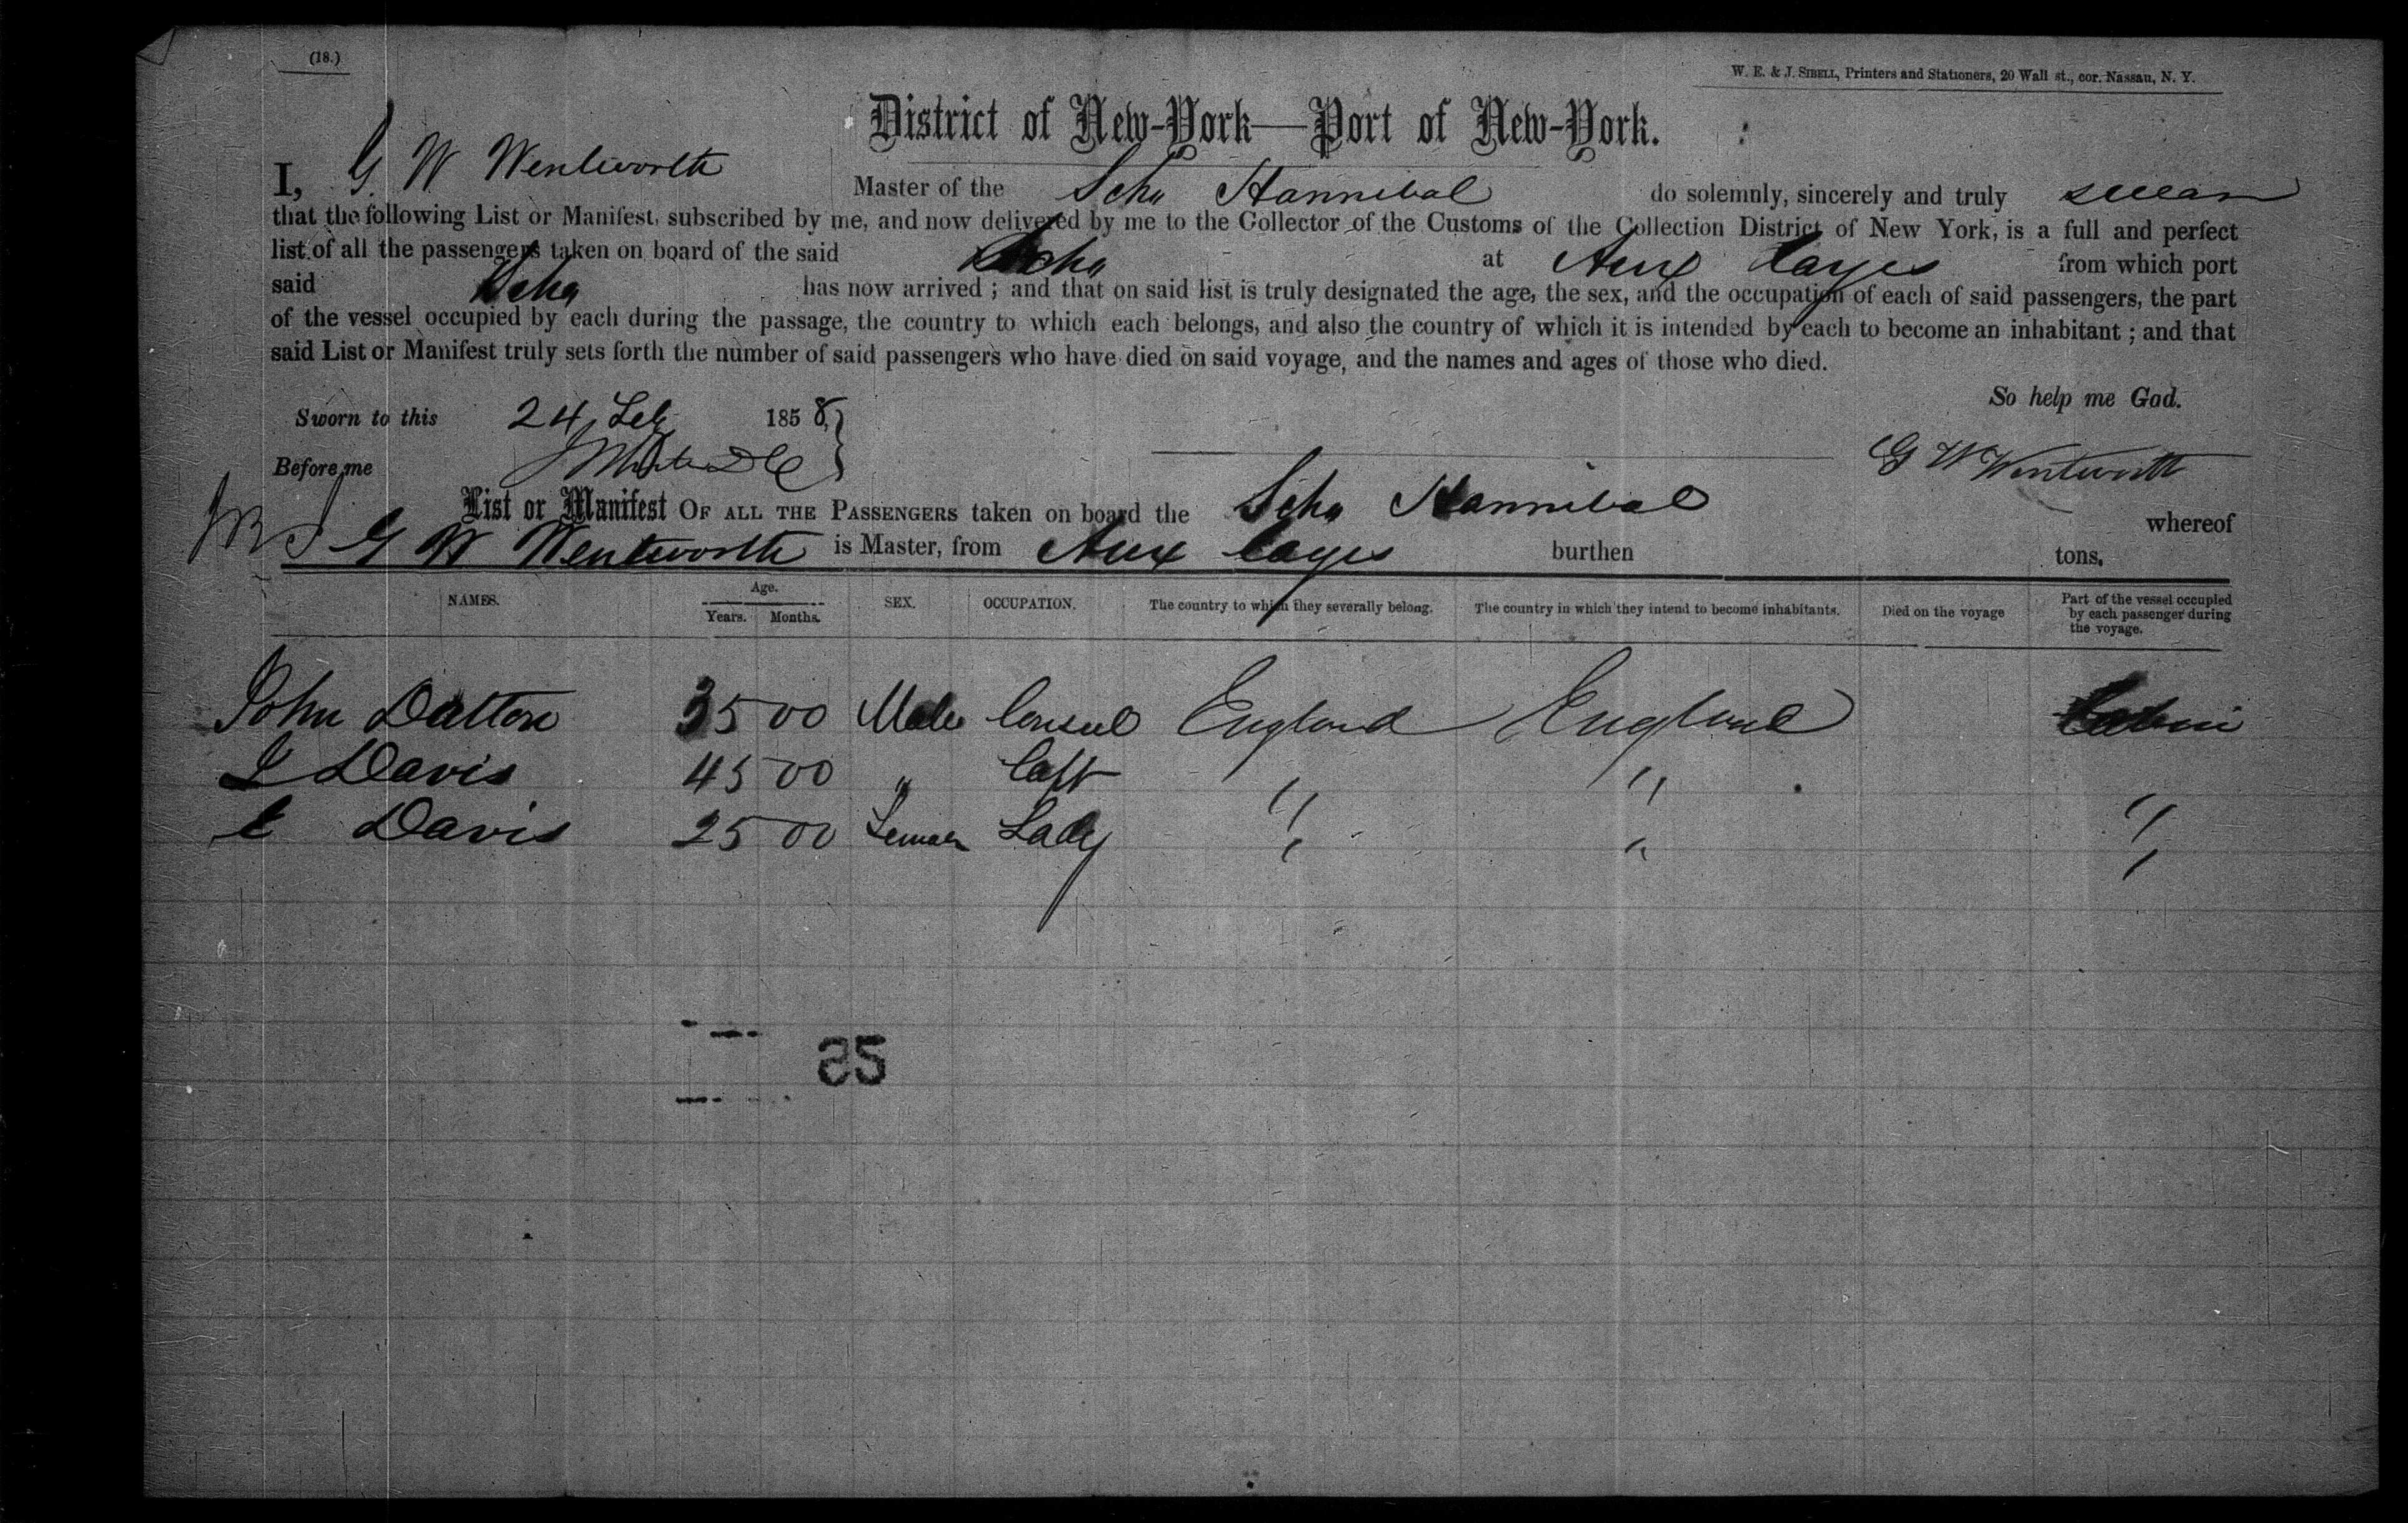 (18.)
W. E. & J. SIBELL, Printers and Stationers, 20 Wall st., cor. Nassau, N. Y.
District of New-York—Port of New-York.
I, G. W Wentworth Master of the Schr Hannibal do solemnly, sincerely and truly swear
that the following List or Manifest, subscribed by me, and now delivered by me to the Collector of the Customs of the Collection District of New York, is a full and perfect
list of all the passengers taken on board of the said Schr at Aux Cayes from which port
said Schr has now arrived ; and that on said list is truly designated the age, the sex, and the occupation of each of said passengers, the part
of the vessel occupied by each during the passage, the country to which each belongs, and also the country of which it is intended by each to become an inhabitant ; and that
said List or Manifest truly sets forth the number of said passengers who have died on said voyage, and the names and ages of those who died.
So help me God.
Sworn to this 24, Feb 1858,
Before me
G W Wentworth
List or Manifest OF ALL THE PASSENGERS taken on board the Schr Hannibal whereof
G W Wentworth is Master, from Aux Cayes burthen tons.
NAMES. Age. Years. Months. SEX. OCCUPATION. The country to which they severally belong. The country in which they intend to become inhabitants. Died on the voyage Part of the vessel occupied by each passenger during the voyage.
John Dalton 35 00 Male Consul England England Cabin
L Davis 45 00 " Capt " " "
E Davis 25 00 Female Lady " " "
25